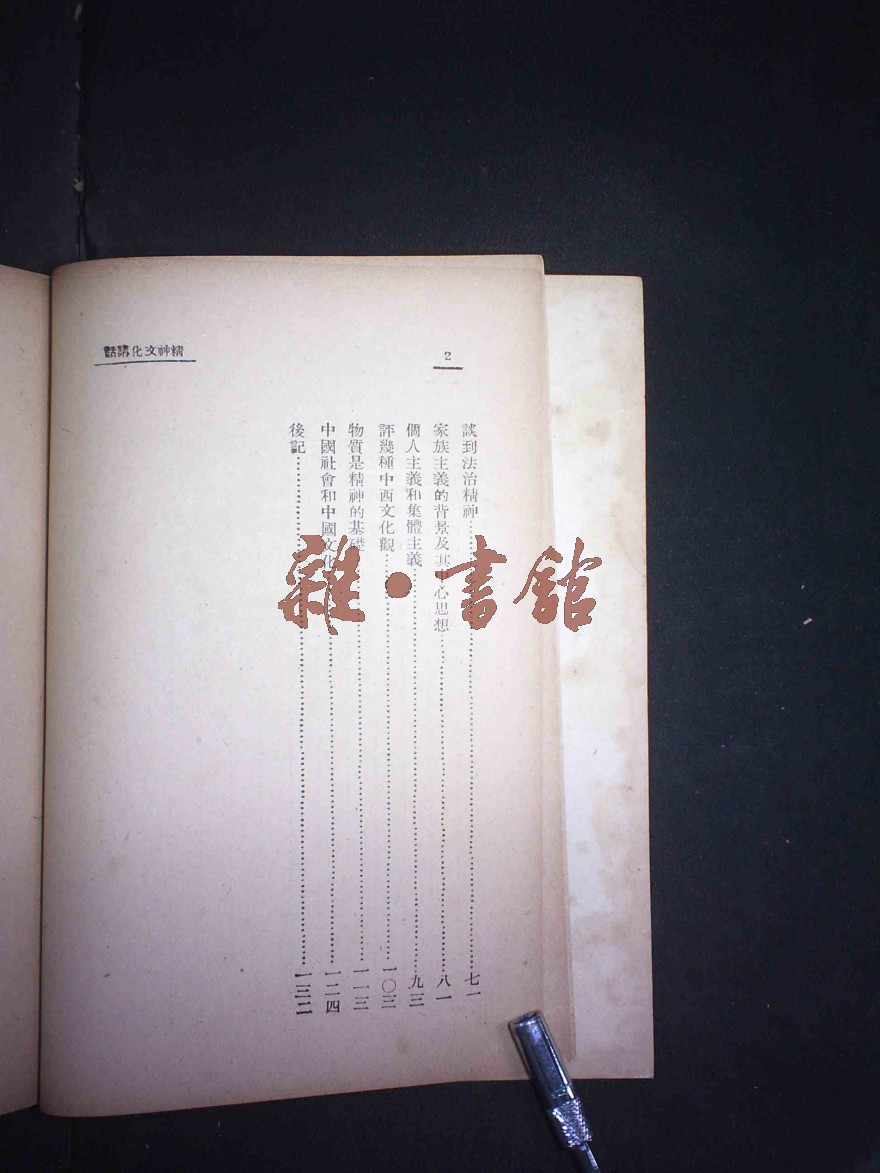 2
精神文化講話
談到法治精神……七一
家族主義的背景及其中心思想……八一
個人主義和集體主義……九三
評幾種中西文化觀……一〇三
物質是精神的基礎……一一三
中國社會和中國文化……一二四
後記……一三二
雜·書館